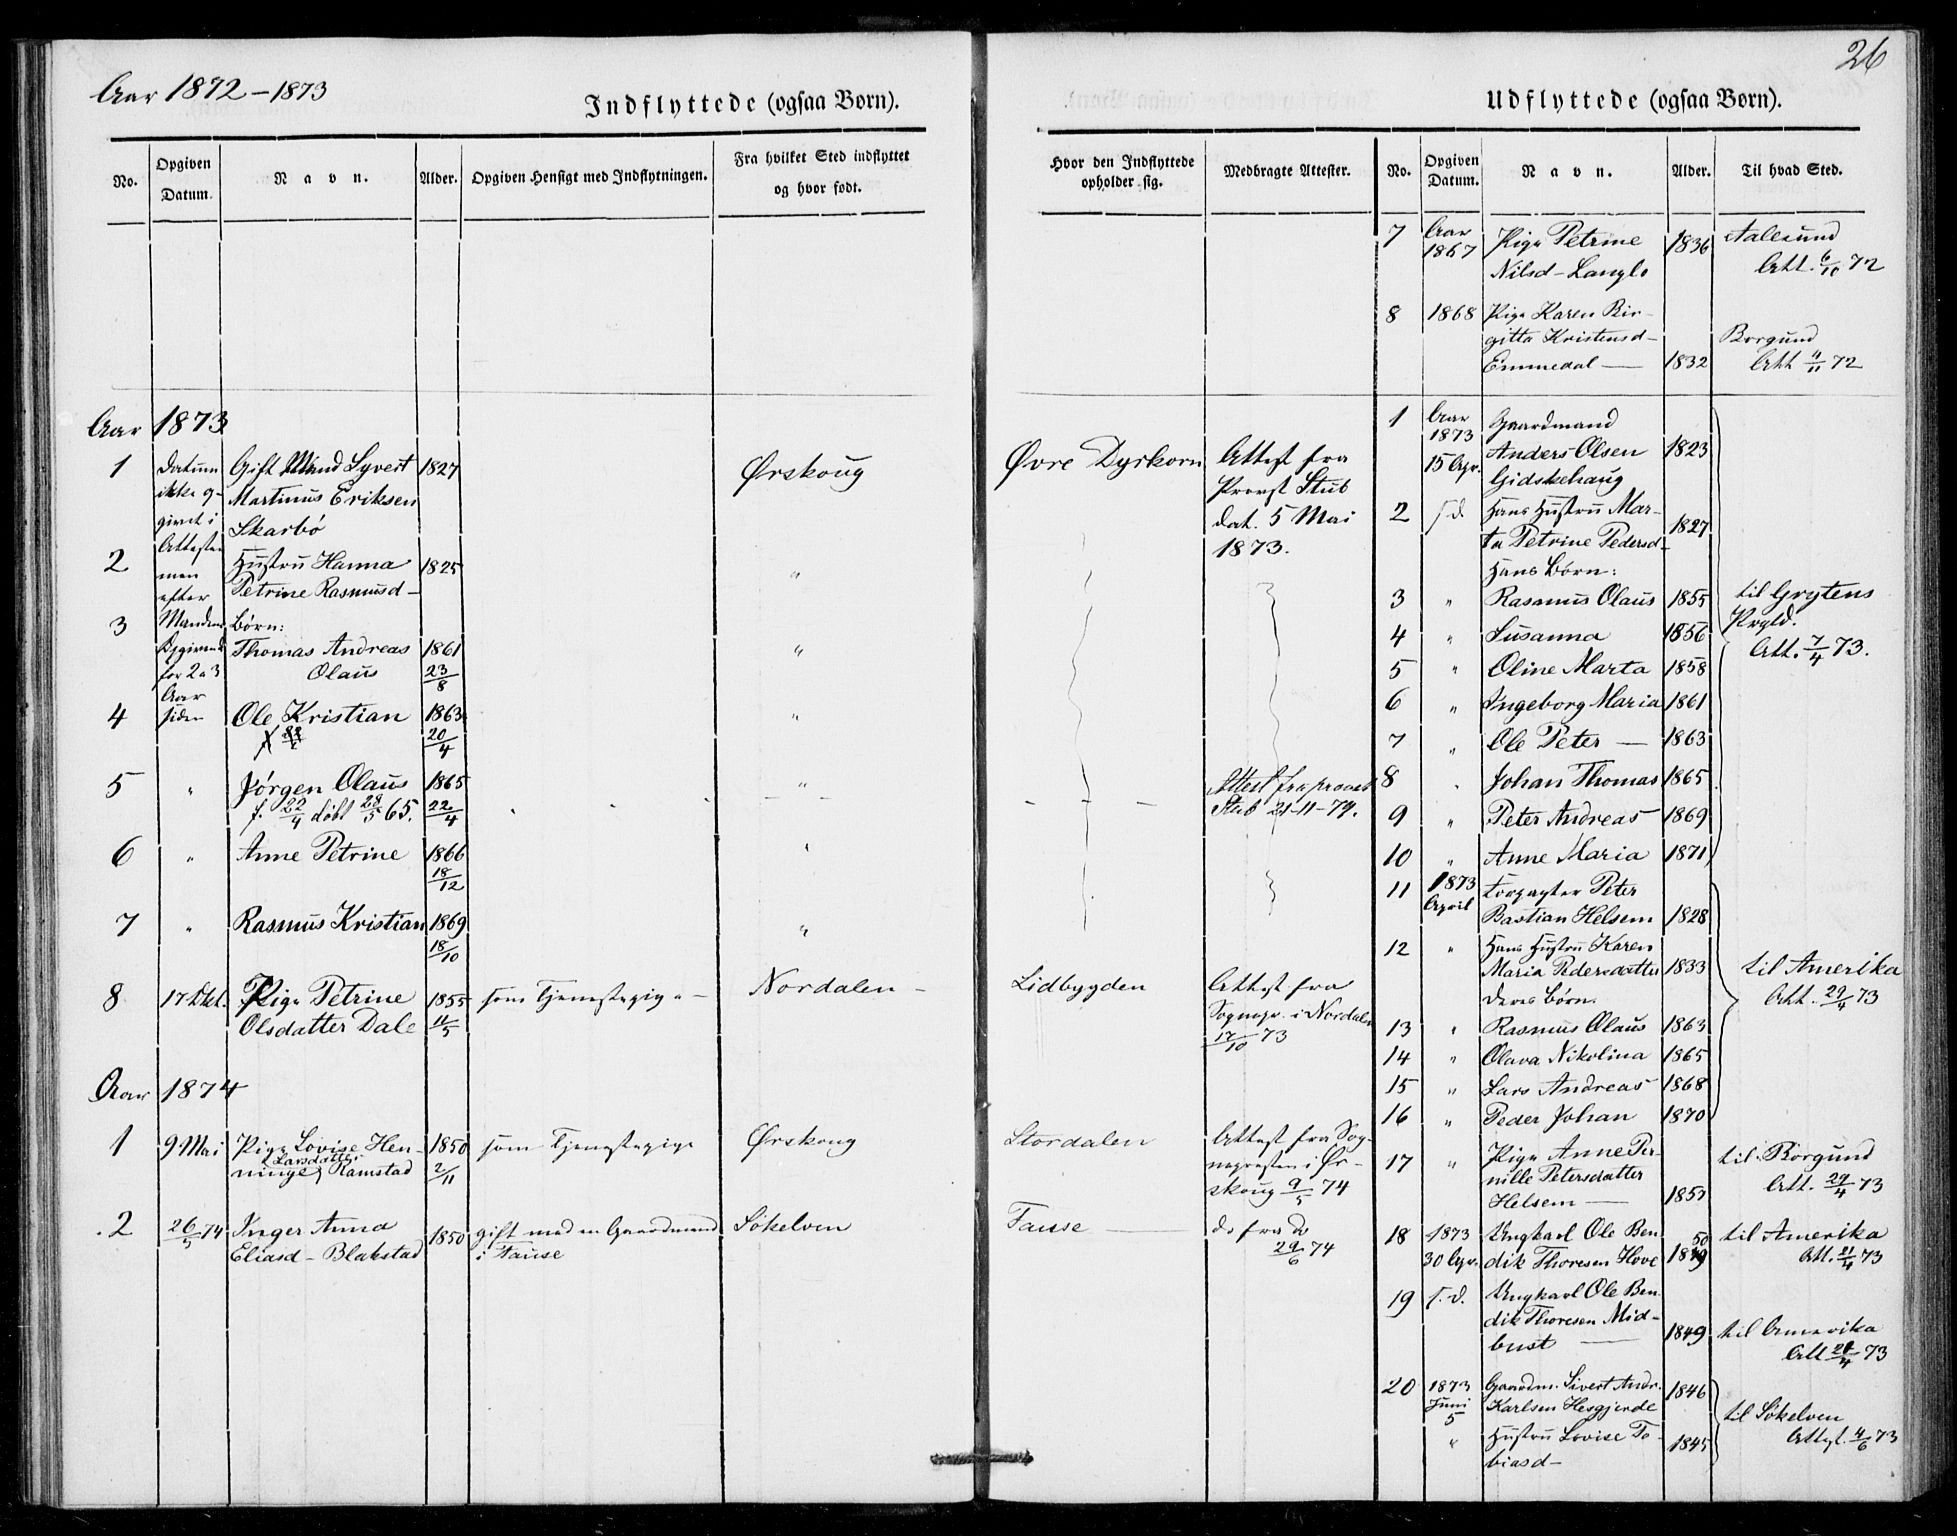 Aar 1872-1873
Indflyttede (ogsaa Børn).
No.
Opgiven
Datum.
Navn.
Alder.
Opgiven Hensigt med Indflytningen.
Fra hvilket Sted indflyttet
og hvor født.
Aar 1873
1 Datum Gift Mand Syvert 1827 Ørskoug
ikke op- Martinus Eriksen
givet i Skarbø
Attesten
2 men Hustru Hanna 1825 "
efter Petrine Rasmusd-
3 Mandens Børn:
Opgivende Thomas Andreas 1861 "
for 2 a 3 Olaus 23/8
Aar
4 siden Ole Kristian 1863 "
20/4
5 " Jørgen Olaus 1865 "
f. 22/4 døbt 28/5 65. 22/4
6 " Anne Petrine 1866 "
18/12
7 " Rasmus Kristian 1869 "
18/10
8 17 Okt. Pige Petrine 1855 som Tjenestepige - Nordalen -
Olsdatter Dale 11/5
Aar 1874
1 9 Mai Pige Lovise Hen- 1850 som Tjenestepige Ørskoug
Larsdatter
ninge Ramstad 2/11
2 26/5 74 Inger Anna 1850 gift med en Gaardmand Søkelven
Eliasd- Blakstad i Fause
26
Udflyttede (ogsaa Børn).
Hvor den Indflyttede
opholder sig.
Medbragte Attester.
No.
Opgiven
Datum.
Navn.
Alder.
Til hvad Sted.
Øvre Dyrkorn Attest fra
Provst Stub
dat. 5 Mai
1873.
Attest fra provst
Stub 21-11-79.
Lidbygden Attest fra
Sognepr. i Nordalen
17/10 73
Stordalen Attest fra Sog-
nepresten i Ør-
skoug 9/5 74
Fause do fra do
29/6 74
7 Aar Pige Petrine 1836 Aalesund
1867 Nilsd- Langlo Att. 6/10 72
8 1868 Pige Karen Bir-
gitta Kristensd- Borgund
Emmedal 1832 Att 4/11 72
1 Aar Gaardmand
1873 Anders Olsen 1823
15 Apr. Gidskehaug
2 s d Hans Hustru Mar- 1827
ta Petrine Pedersd-
Hans Børn:
3 " Rasmus Olaus 1855 til Grytens
4 " Susanna 1856 Prgld.
5 " Oline Marta 1858 Att. 7/4 73.
6 " Ingeborg Maria 1861
7 " Ole Peter 1863
8 " Johan Thomas 1865
9 " Peter Andreas 1869
10 " Anne Maria 1871
11 1873 Forpagter Peter
April Bastian Helsem 1828
12 " Hans Hustru Karen
Maria Pedersdatter 1833 til Amerika
deres Børn. Att. 29/4 73
13 " Rasmus Olaus 1863
14 " Olava Nikolina 1865
15 " Lars Andreas 1868
16 " Peder Johan 1870
17 " Pige Anne Per- til Borgund
nille Petersdatter Att. 29/4 73
Helsem
18 1873 Ungkarl Ole Ben- 50 til Amerika
30 Apr. dik Thoresen Hove 1849 Att. 21/4 73
19 s. d. Ungkarl Ole Ben-
dik Thoresen Mid-
bust 1849 til Amerika
Att 21/4 73
20 1873 Gaardm. Sivert Andr. 1846
Juni Karlsen Hesgjerde til Søkelven
5 Attest. 4/6 73
" Hustru Lovise To- 1845
biasd-